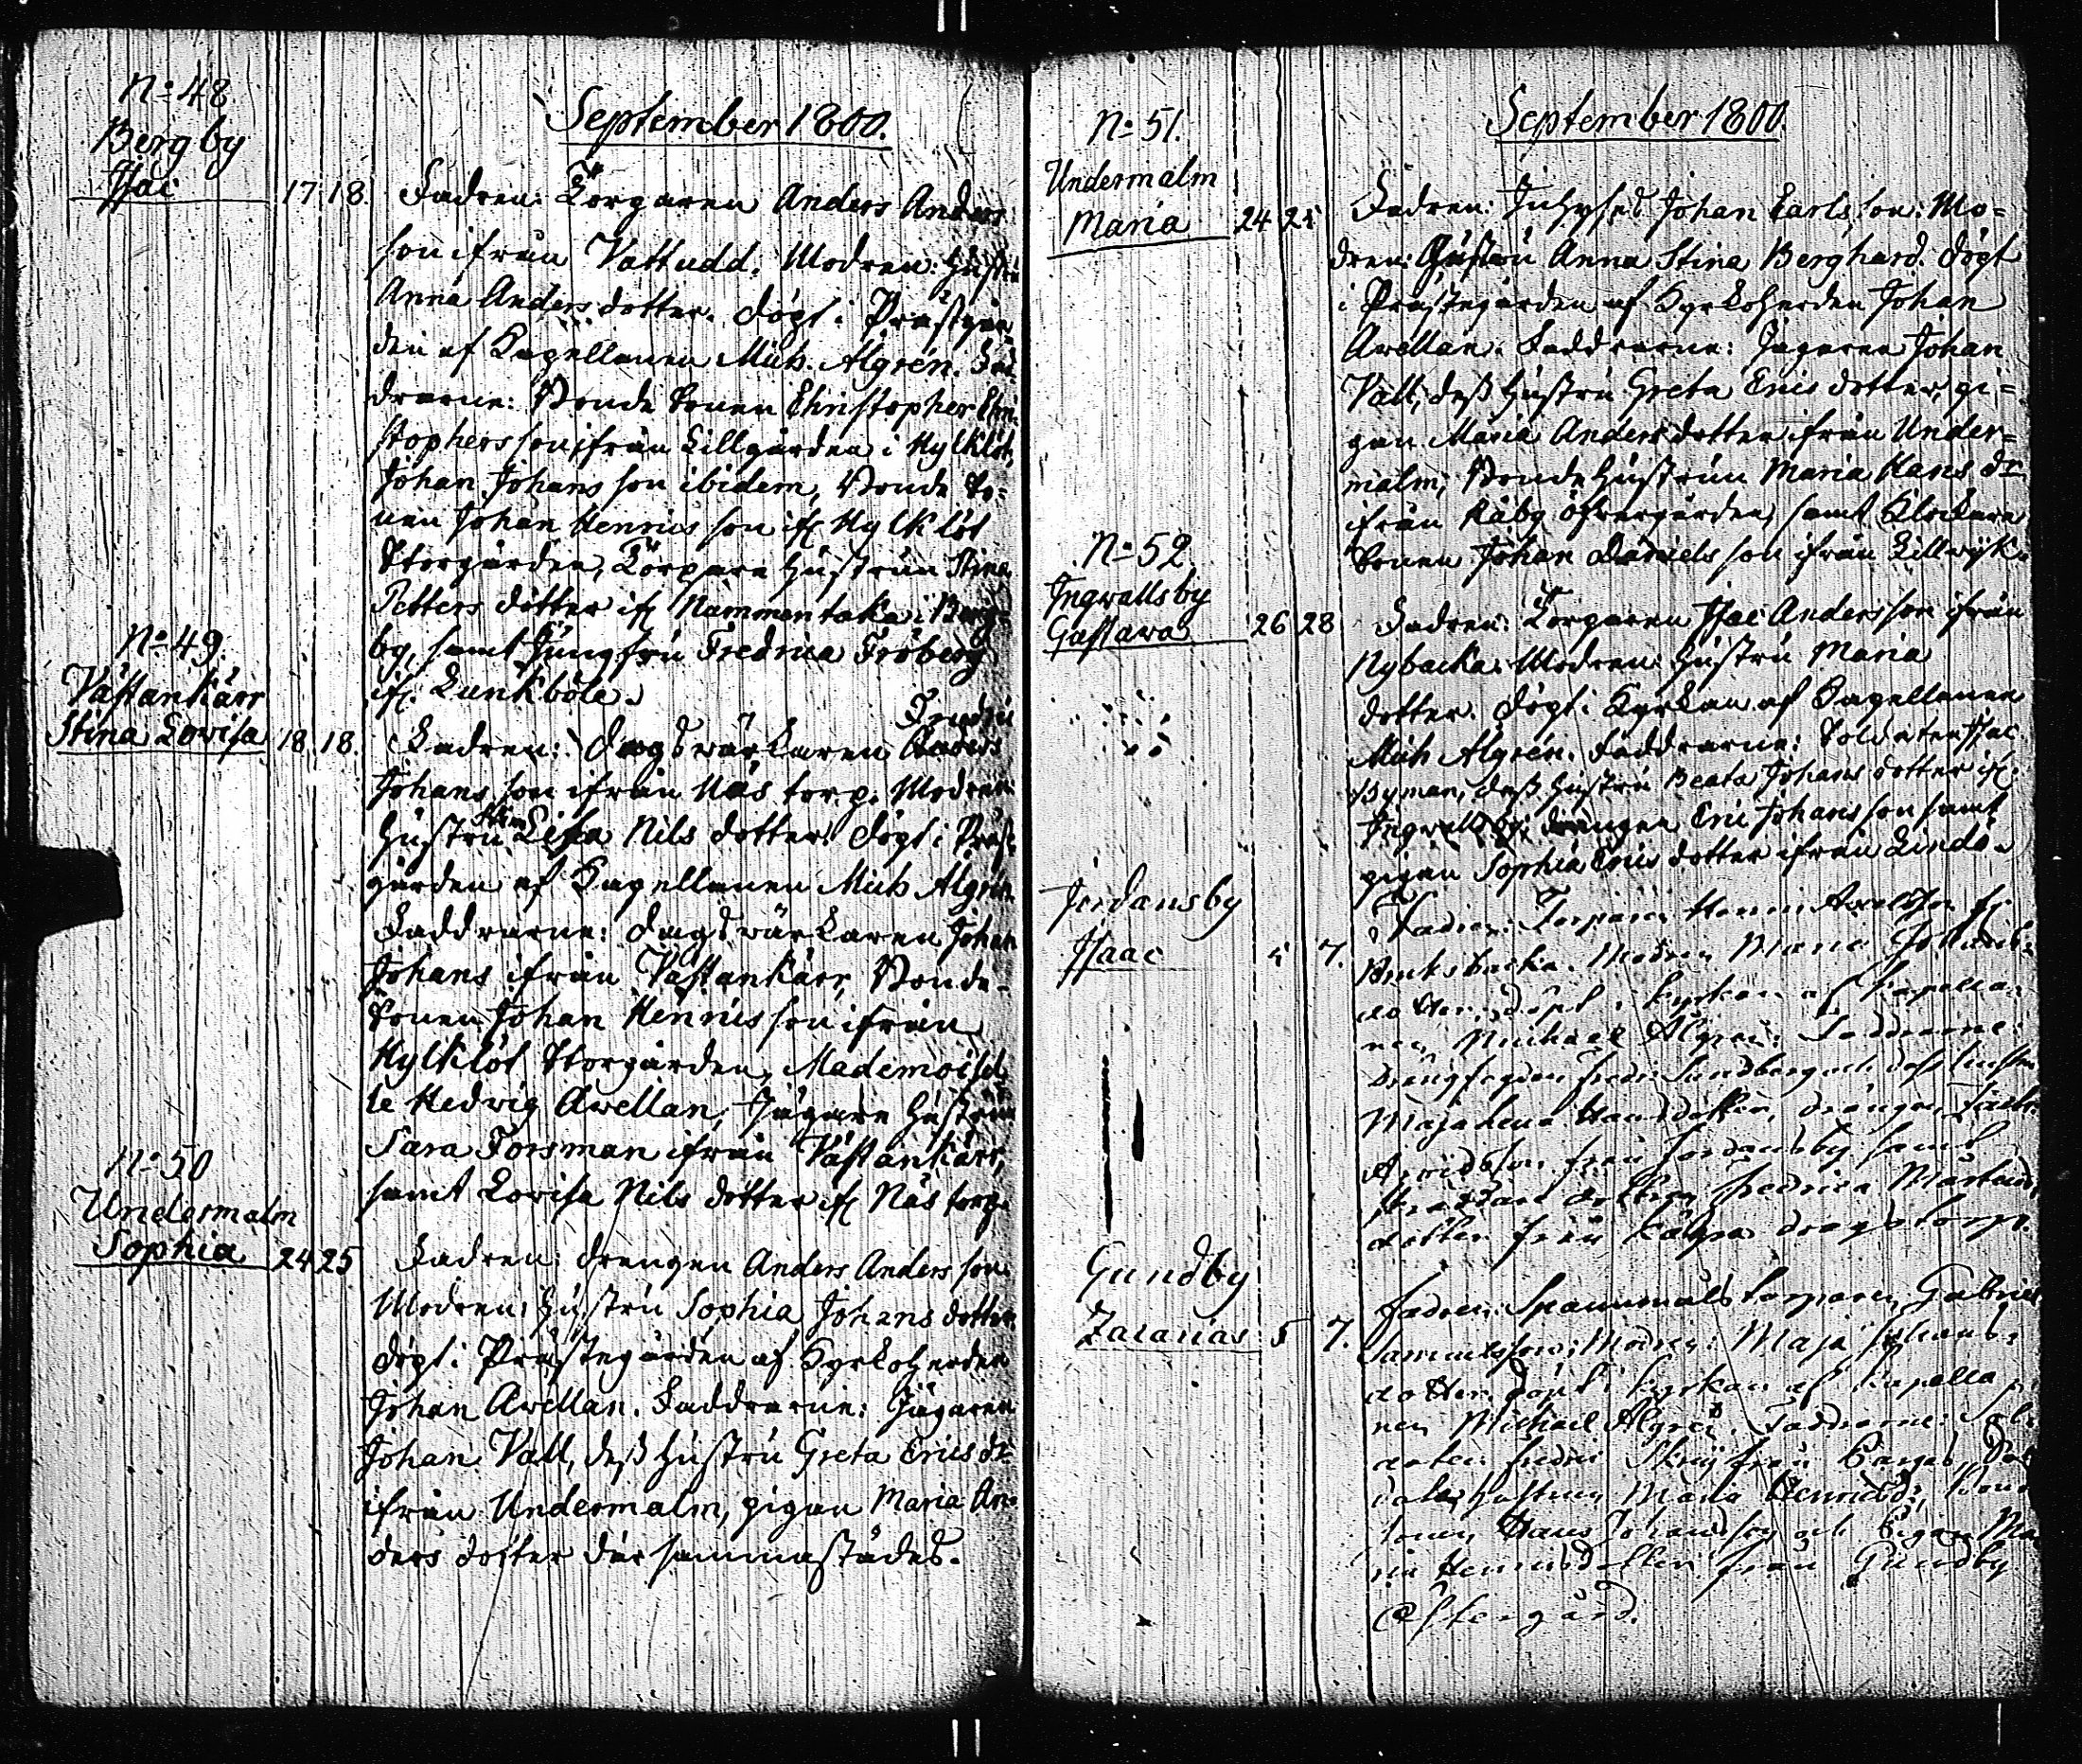 No 48
Bergby
Isac 17 18.
September 1800.
Fadren: Torparen Anders Anders
son ifrån Vattudd. Modren: hustru
Anna Anders dotter. döpt i Prästgår
den af Kapellanen Mich. Algrén. Fad
drarne: Bonde sonen Christopher Chri
stophers son ifrån Lillgården i Kylklöt,
Johan Johans son ibidem, Bonde so-
nen Johan Henrics son ifr. Kylklöt
Storgården, Torpare hustrun Stina
Petters dotter ifr. Nammentaka i Berg-
by, samt Jungfru Fredrica Fröberg
ifr. Lunkböle.
No 49.
Västankärr
Stina Lovisa 18 18.
Fredric
Fadren: dagsvärkaren Anders
Johans son ifrån Näs torp. Modren:
hustru Stina Lisa Nils dotter. döpt i Präst
gården af Kapellanen Mich Algrén.
Faddrarne: dagsvärkaren Johan
Johans ifrån Västankärr, Bonde-
sonen Johan Henrics son ifrån
Kylklöt Storgården, Mademoisel
le Hedvig Avellan, Jägare hustrun
Sara Forsman ifrån Västankärr,
samt Lovisa Nils dotter ifr. Näs torp.
No 50
Undermalm
Sophia 24 25
Fadren: drengen Anders Anders son.
Modren: hustru Sophia Johans dotter
döpt i Prästegården af Kyrkoherden
Johan Avellan. Faddrarne: Jägaren
Johan Vall, dess hustru Greta Erics dr
ifrån Undermalm, pigan Maria An-
ders dotter där sammastädes.
No 51.
Undermalm
Maria 24 25
September 1800.
Fadren: Inhyses Johan Carls son: Mo-
dren: Hustru Anna Stina Berghard. döpt
i Prästegården af Kyrkoherden Johan
Avellan. Faddrarne: Jägaren Johan
Vall, dess hustru Greta Erics dotter, pi-
gan Maria Anders dotter ifrån Under-
malm, Bonde hustrun Maria Hans dr
ifrån Råby öfvergården, samt Klockare
sonen Johan Daniels son ifrån Lillvyk.
No 52.
Ingvallsby
Gustava 26 28
Fadren: Torparen Isac Anders son ifrån
Nybacka. Modren: hustru Maria
dotter. döpt i Kyrkan af Kapellanen
Mich Algrén. Faddrarne: Soldaten Isac
Byman, dess hustru Beata Johans dotter ifr.
Ingvallsby, drengen Eric Johans son samt
pigan Sophia Erics dotter ifrån Lindö.
Jordansby
Isaac 5 7.
Fadren: Torparen Henric Axelsson fr.
backa. Modren Maria Johans-
dotter, döpt i kyrkan af Kapella-
nen Michael Algren. Faddrarne:
Drengfogden Fredr. Sundberg och dess hustru
Maja Lena Hansdotter, drängen
Arvidsson från Jordansby samt
dottren Fredrica Mårtens
dotter från torp.
Gundby
Zacarias 5 7.
Fadren: Spannmåls torparen Gabriel
Samuelsson; Modren: Maja Johans-
dotter, döpt i kyrkan af Kapella
nen Michael Algren. Faddrarne: Sol-
daten Fredric från
hustrun Maria Henricsd:, Bond
sonen Hans Johansson och Pigan Ma
ria Henricsdotter från Gundby
Östergård.